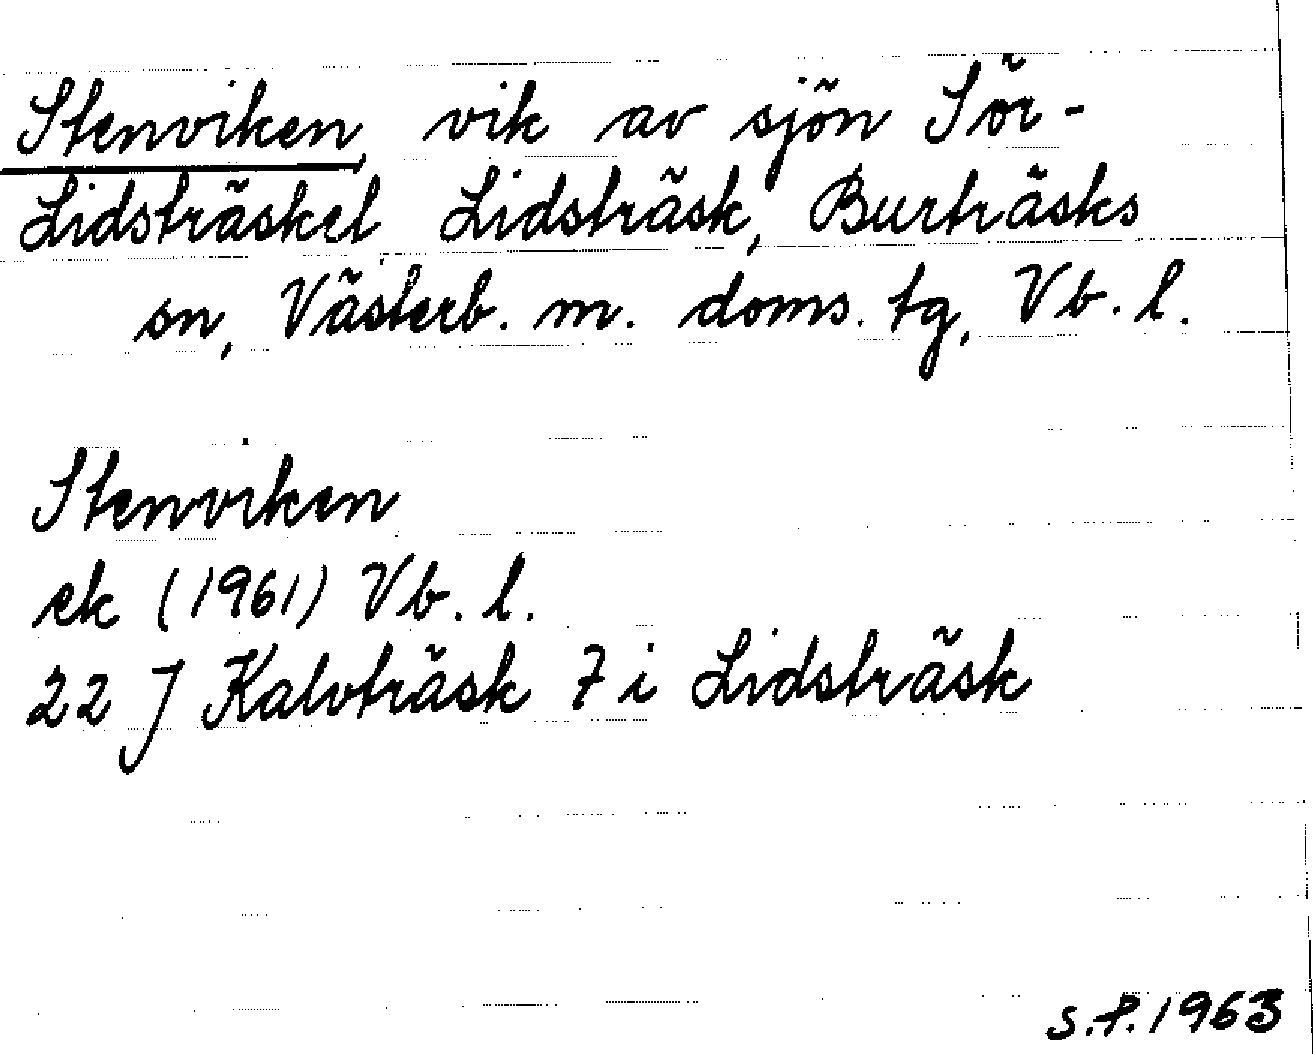 Stenviken, vik av sjön Sör-
Lidsträsket Lidsträsk, Burträsks
sn, Västerb. m. doms. tg, Vb. l.
Stenviken
ek (1961) Vb. l.
22 J Kalvträsk 7 i Lidsträsk
S.P. 1963